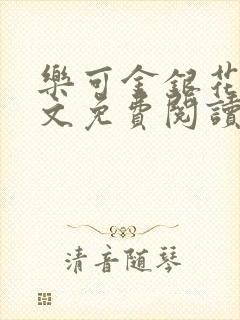 樂可金銀花
文免費閱讀
清音随琴